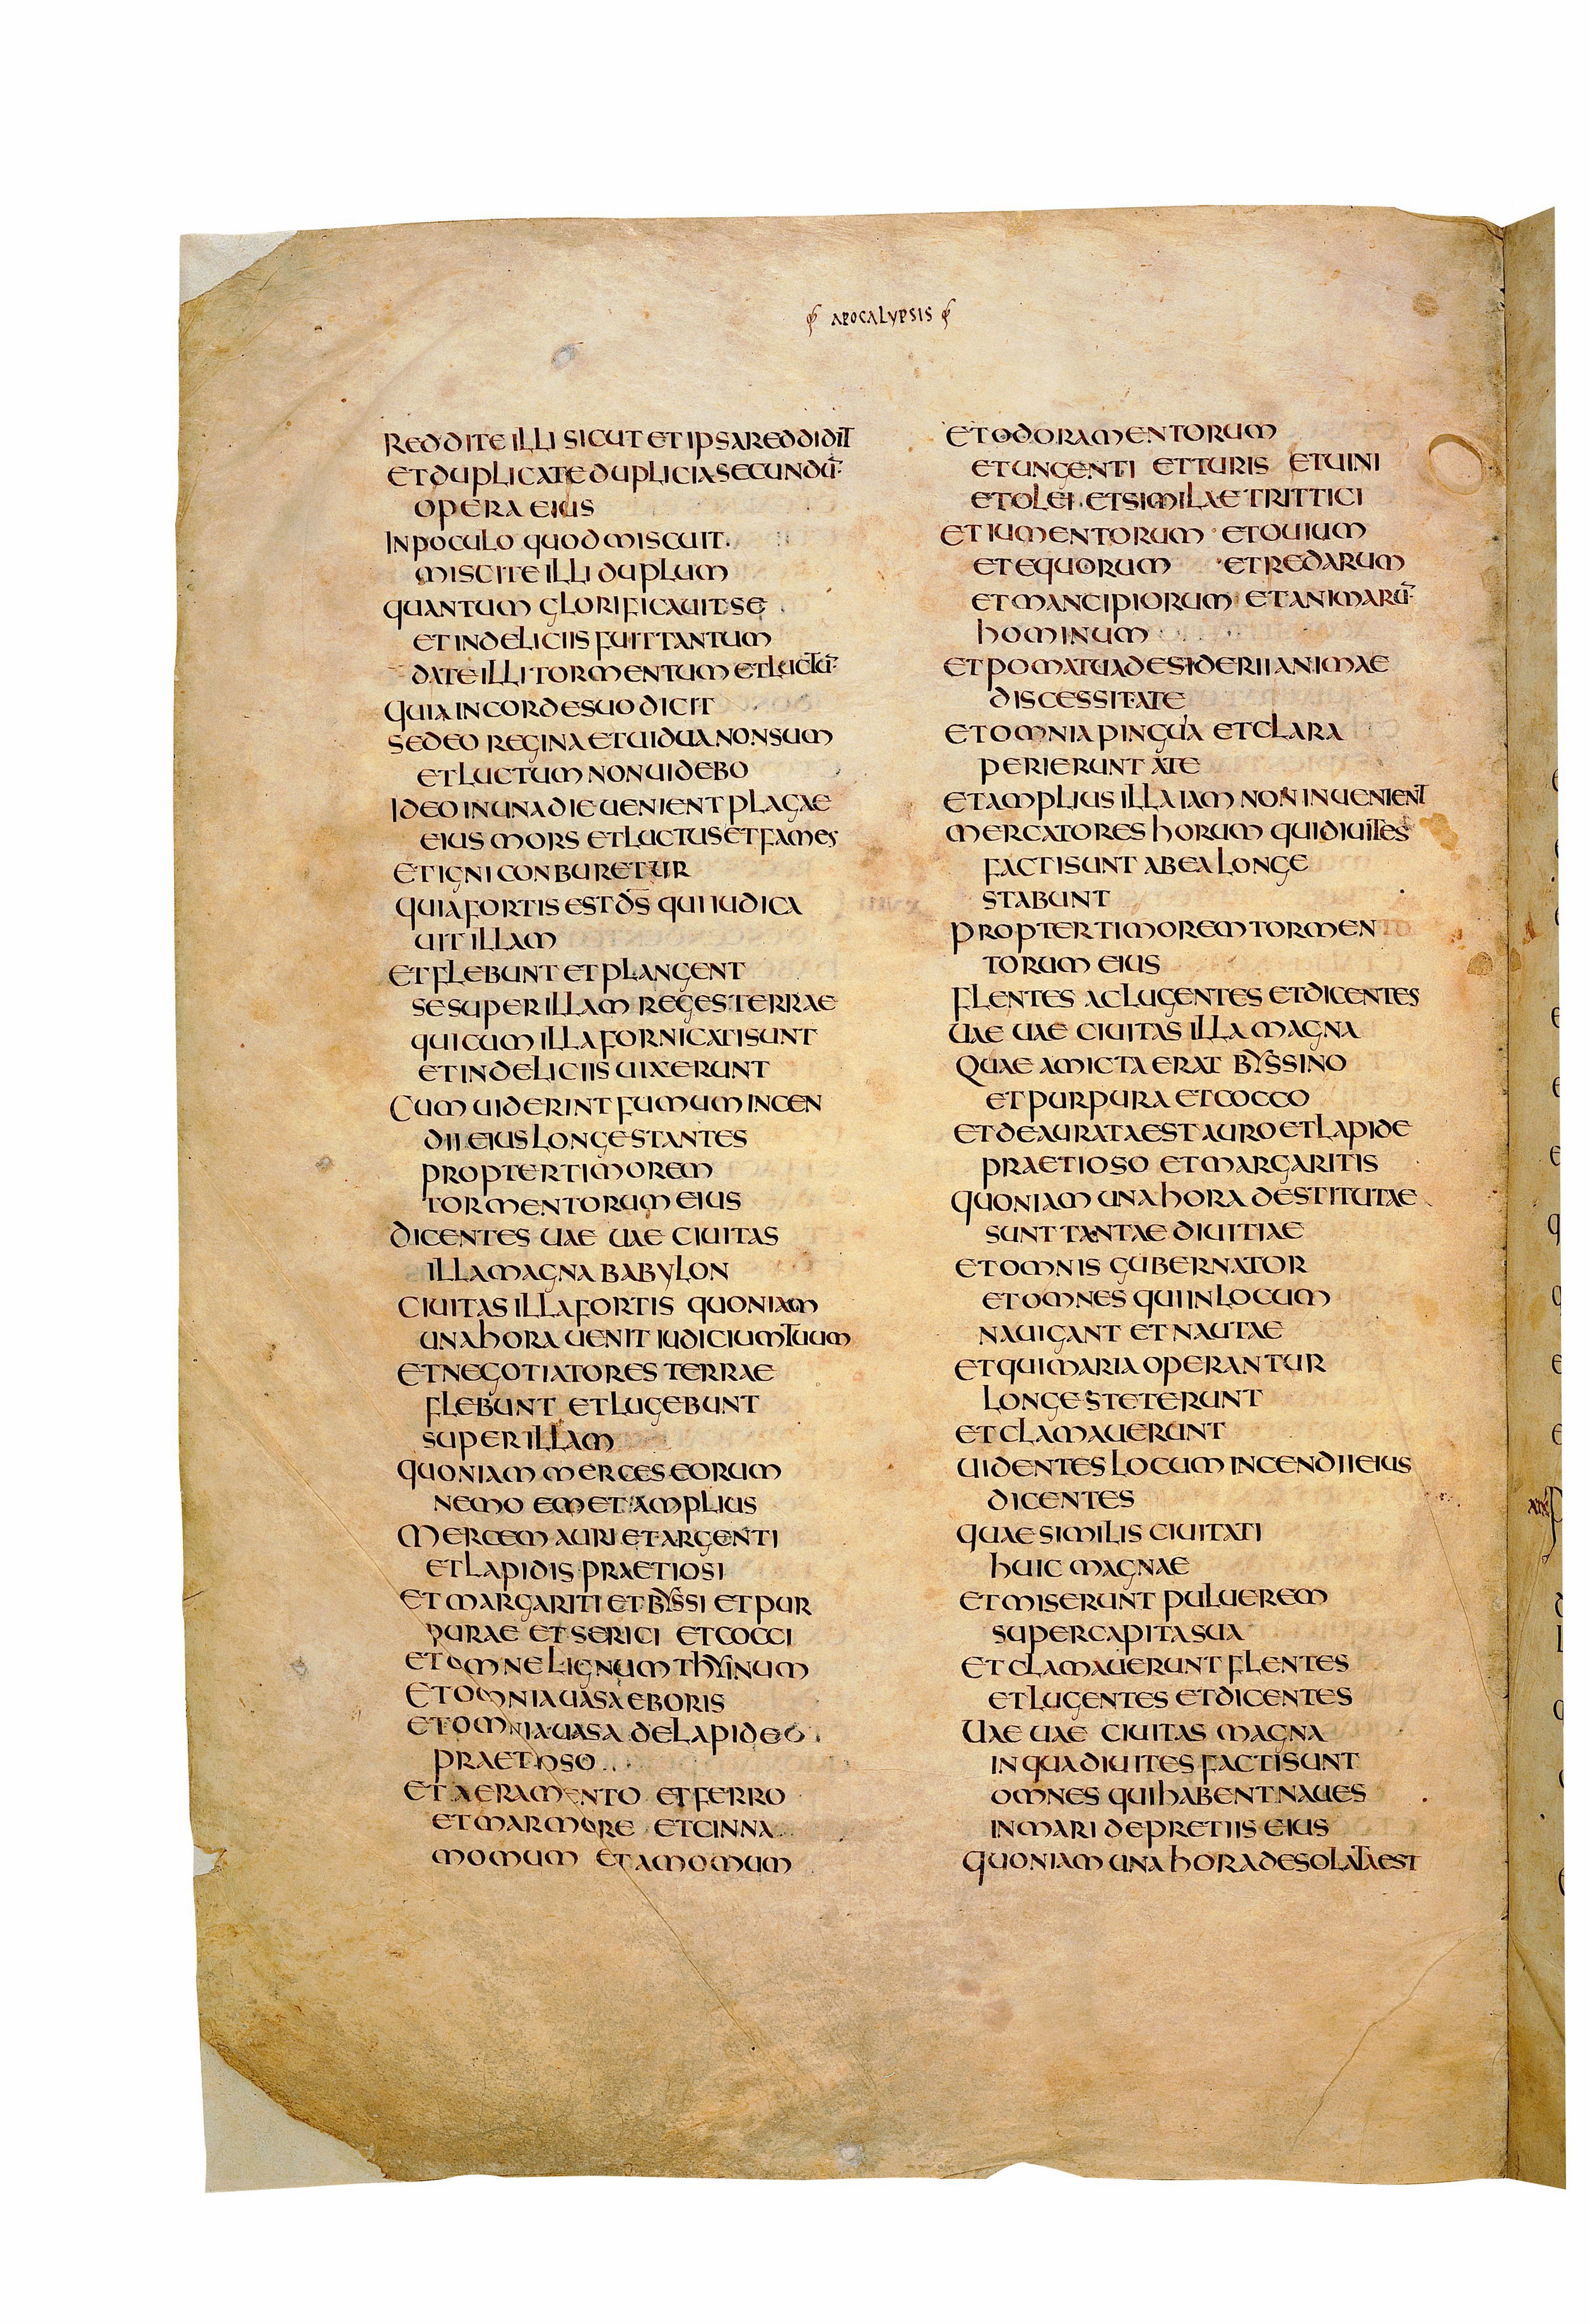 APOCALYPSIS
REDDITE ILLI SICUT ET IPSA REDDIDIT
ET DUPLICATE DUPLICIA SECUNDŪ
OPERA EIUS
IN POCULO QUOD MISCUIT
MISCITE ILLI DUPLUM
QUANTUM GLORIFICAUIT SE
ET IN DELICIIS FUIT TANTUM
DATE ILLI TORMENTUM ET LUCTŪ
QUIA IN CORDE SUO DICIT
SEDEO REGINA ET UIDUA NON SUM
ET LUCTUM NON UIDEBO
IDEO IN UNA DIE UENIENT PLAGAE
EIUS MORS ET LUCTUS ET FAMES
ET IGNI CONBURETUR
QUIA FORTIS EST D̄S QUI IUDICA
UIT ILLAM
ET FLEBUNT ET PLANGENT
SE SUPER ILLAM REGES TERRAE
QUI CUM ILLA FORNICATI SUNT
ET IN DELICIIS UIXERUNT
CUM UIDERINT FUMUM INCEN
DII EIUS LONGE STANTES
PROPTER TIMOREM
TORMENTORUM EIUS
DICENTES UAE UAE CIUITAS
ILLA MAGNA BABYLON
CIUITAS ILLA FORTIS QUONIAM
UNA HORA UENIT IUDICIUM TUUM
ET NEGOTIATORES TERRAE
FLEBUNT ET LUGEBUNT
SUPER ILLAM
QUONIAM MERCES EORUM
NEMO EMET AMPLIUS
MERCEM AURI ET ARGENTI
ET LAPIDIS PRAETIOSI
ET MARGARITI ET BYSSI ET PUR
PURAE ET SERICI ET COCCI
ET OMNE LIGNUM THYINUM
ET OMNIA UASA EBORIS
ET OMNIA UASA DE LAPIDE
PRAETIOSO
ET AERAMENTO ET FERRO
ET MARMORE ET CINNA
MOMUM ET AMOMUM
ET ODORAMENTORUM
ET UNGENTI ET TURIS ET UINI
ET OLEI ET SIMILAE TRITTICI
ET IUMENTORUM ET OUIUM
ET EQUORUM ET REDARUM
ET MANCIPIORUM ET ANIMARŪ
HOMINUM
ET POMA TUA DESIDERII ANIMAE
DISCESSIT A TE
ET OMNIA PINGUA ET CLARA
PERIERUNT A TE
ET AMPLIUS ILLA IAM NON INUENIENT
MERCATORES HORUM QUI DIUITES
FACTI SUNT AB EA LONGE
STABUNT
PROPTER TIMOREM TORMEN
TORUM EIUS
FLENTES AC LUGENTES ET DICENTES
UAE UAE CIUITAS ILLA MAGNA
QUAE AMICTA ERAT BYSSINO
ET PURPURA ET COCCO
ET DEAURATA EST AURO ET LAPIDE
PRAETIOSO ET MARGARITIS
QUONIAM UNA HORA DESTITUTAE
SUNT TANTAE DIUITIAE
ET OMNIS GUBERNATOR
ET OMNES QUI IN LOCUM
NAUIGANT ET NAUTAE
ET QUI MARIA OPERANTUR
LONGE STETERUNT
ET CLAMAUERUNT
UIDENTES LOCUM INCENDII EIUS
DICENTES
QUAE SIMILIS CIUITATI
HUIC MAGNAE
ET MISERUNT PULUEREM
SUPER CAPITA SUA
ET CLAMAUERUNT FLENTES
ET LUGENTES ET DICENTES
UAE UAE CIUITAS MAGNA
IN QUA DIUITES FACTI SUNT
OMNES QUI HABENT NAUES
IN MARI DE PRETIIS EIUS
QUONIAM UNA HORA DESOLATA EST